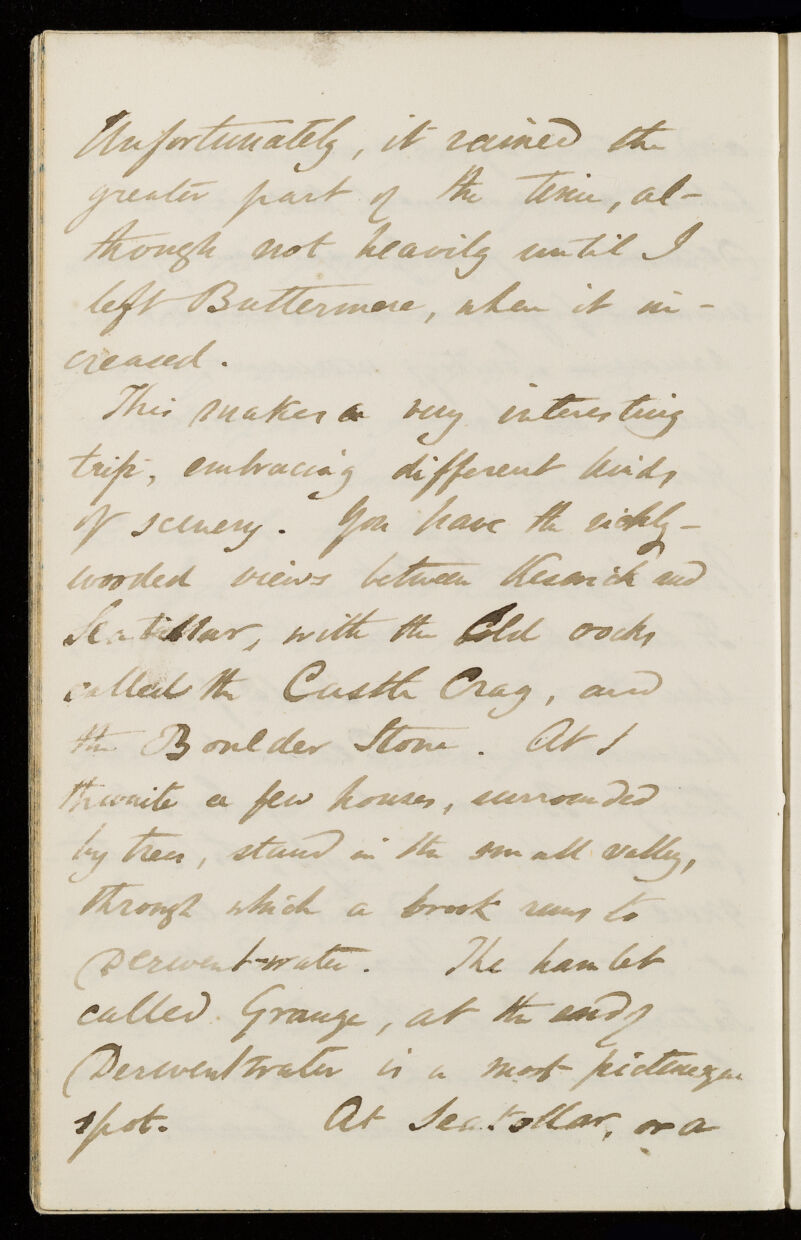 Unfortunately, it rained the
greater part of the time, al-
though not heavily until I
left Buttermere, when it in-
creased.
This makes a very interesting
trip, embracing different kinds
of scenery. You have the richly-
wooded views between Keswick and
Seatollar, with the bold rocks
called the Castle Crag, and
the Boulder Stone. At
thwaite a few houses, surrounded
by trees, stand in the small valley,
through which a brook runs to
Derwent-water. The hamlet
called Grange, at the end of
Derwentwater is a most picturesque
spot. At Seatollar, or a